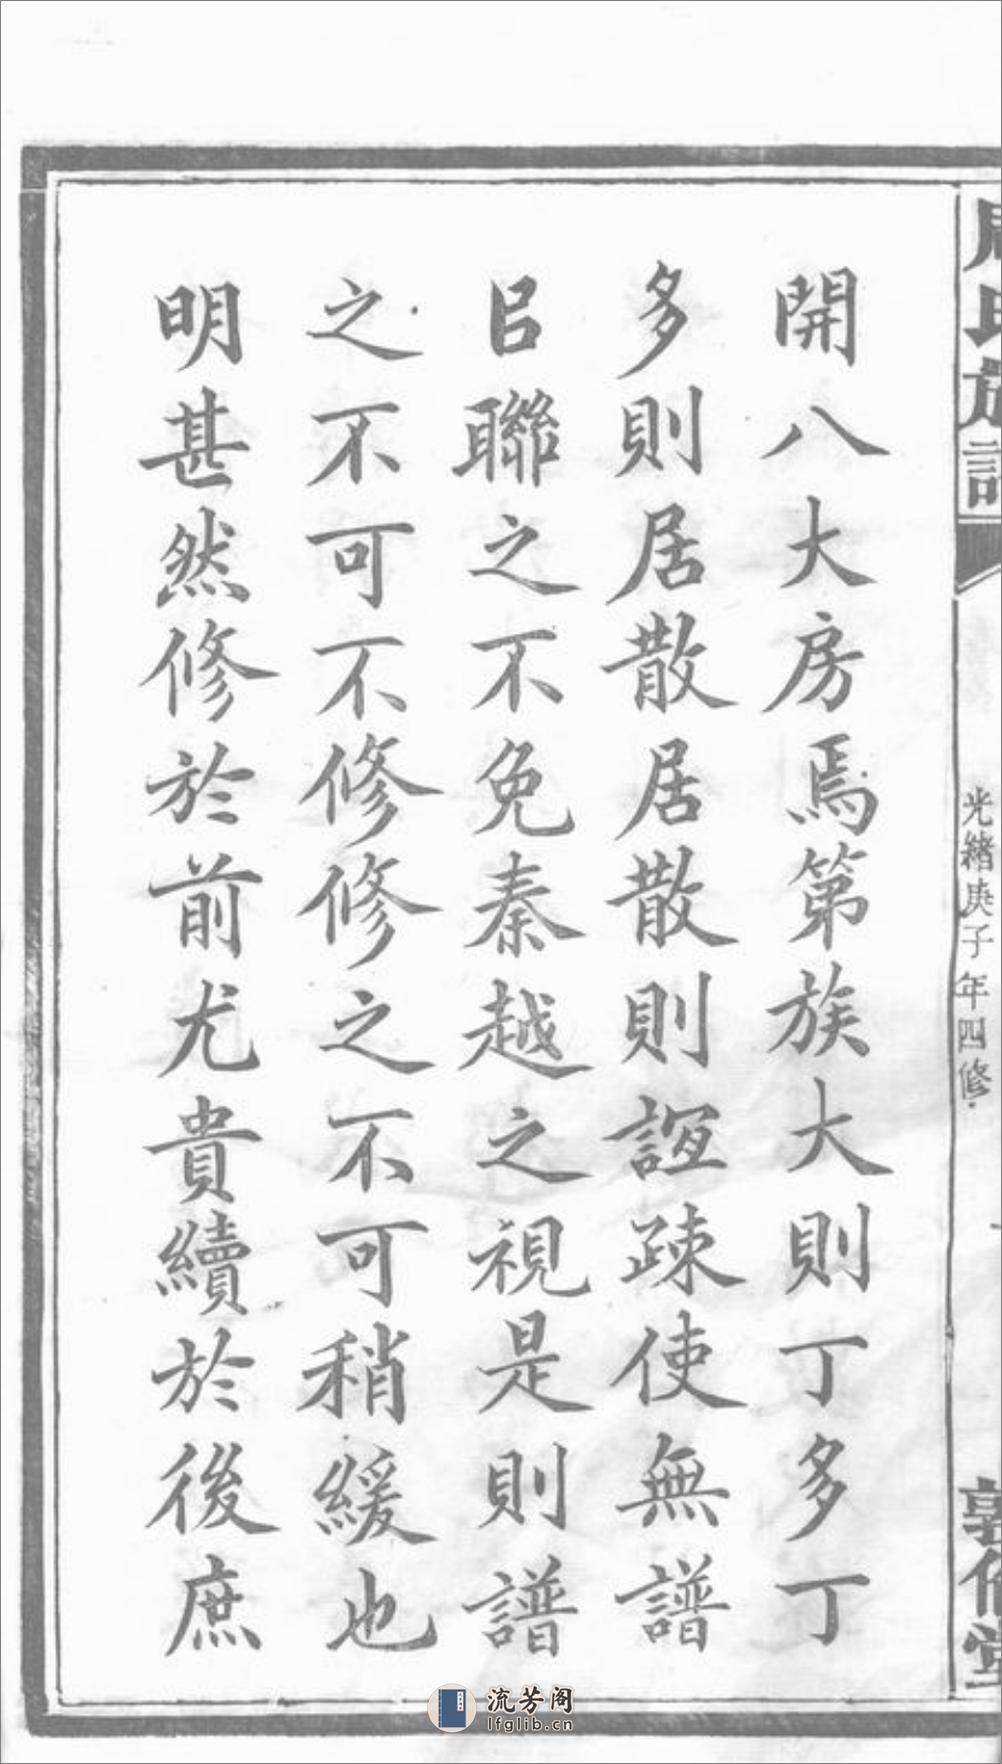 周氏族譜
光緒庚子年四修
敦倫堂
開八大房焉第族大則丁多丁
多則居散居散則誼疎使無譜
㠯聯之不免秦越之視是則譜
之不可不修修之不可稍緩也
明甚然修於前尤貴續於後庶
流芳阁
lfglib.cn